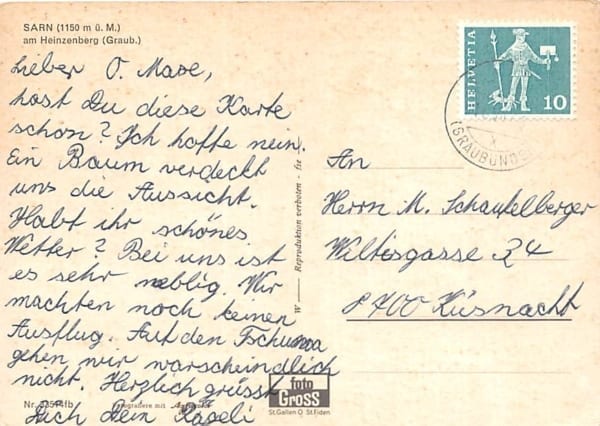 SARN (1150 m ü. M.)
am Heinzenberg (Graub.)
Lieber O. Maxe,
hast Du diese Karte
schon? Ich hoffe nein.
Ein Baum verdeckt
uns die Aussicht.
Habt ihr schönes
Wetter? Bei uns ist
es sehr neblig. Wir
machten noch keinen
Ausflug. Auf den Tschuma
gehen wir warscheindlich
nicht. Herzlich grüsst
Dich Dein Rägeli
Nr.
fotografiere mit
W
Reproduktion verboten - fie
foto
GROSS
St.Gallen O St.Fiden
HELVETIA
10
(GRAUBÜNDE
An
Herrn M. Schaufelberger
Wiltisgasse 24
8700 Küsnacht